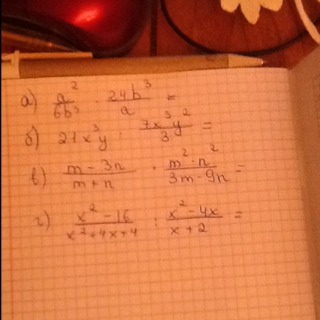 а) a²/6b³ · 24b³/a =
б) 21x³y : 7x³y²/3 =
в) m - 3n/m + n · m² · n²/3m - 9n =
г) x² - 16/x² + 4x + 4 : x² - 4x/x + 2 =